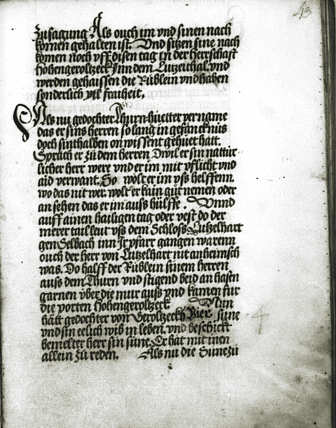 zusagung. Als ouch im und sinen nach
komen gehalten ist. Und sitzen sine nach
komen noch uff disen tag in der herrschafft
Hohengeroltzeck inn dem Lützenthal und
werden gehaissen die Rüblein und haben
sonderlich vil freiheit.
Als nu gedochter Thurn hüetter vername
das er sins herren so lang in gefencknüs
doch sinthalben on wissent gehuet hatt.
Sprach er zu dem herren Wyl er sin nattür
licher herr were und er im mit pflicht und
aid verwant. So wolt er im uss helffenn
wo das nit wer. wolt er kain gut nemen oder
an sehen das er im auss hülffe. Unnd
auff ainen hailigen tag oder vest do der
merer tail leut uss dem Schloss Lützelhart
gen Selbach inn Ir pfarr gangen warenn
ouch der herr von Lützelhart nit anheimsch
was. Do halff der Rüblein sinem herren
auss dem Thurn und stigend beid an hasen
garnen über die mur auss und kamen für
die porten Hohengeroltzeck. Nun
hatt gedochter von Geroltzeck Vier süne
und sin eelich wib in leben. und beschickt
bemelter herr sin sünt. Er hat mit inen
allein zu reden. Als nu die Sune zu